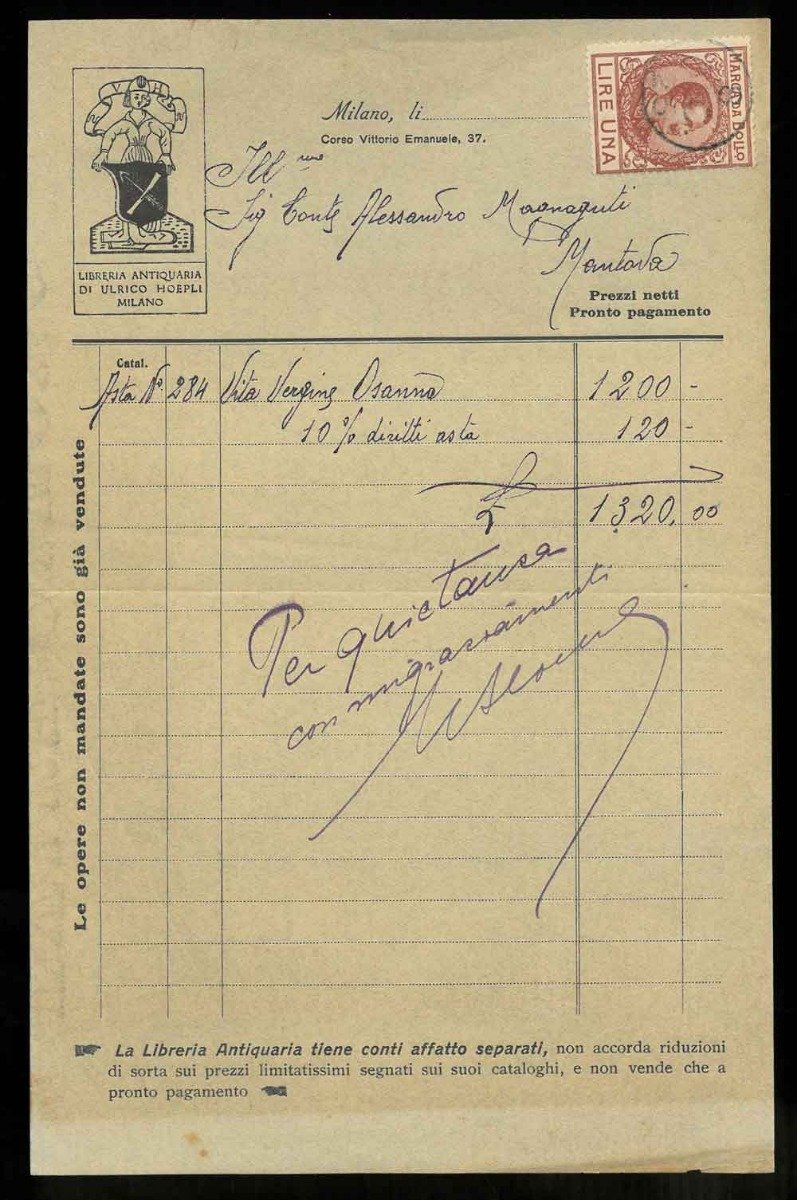 V H
LIBRERIA ANTIQUARIA
DI ULRICO HOEPLI
MILANO
MARCA DA BOLLO
LIRE UNA
Milano, li
Corso Vittorio Emanuele, 37.
Ill me
Sig Conte Alessandro Magnaguti
Mantova
Prezzi netti
Pronto pagamento
Catal.
Asta No. 284 Vita Vergine Osanna 1200 -
10 % diritti asta 120 -
£ 1320,00
Per quietanza
con ringraziamenti
Le opere non mandate sono già vendute
La Libreria Antiquaria tiene conti affatto separati, non accorda riduzioni
di sorta sui prezzi limitatissimi segnati sui suoi cataloghi, e non vende che a
pronto pagamento